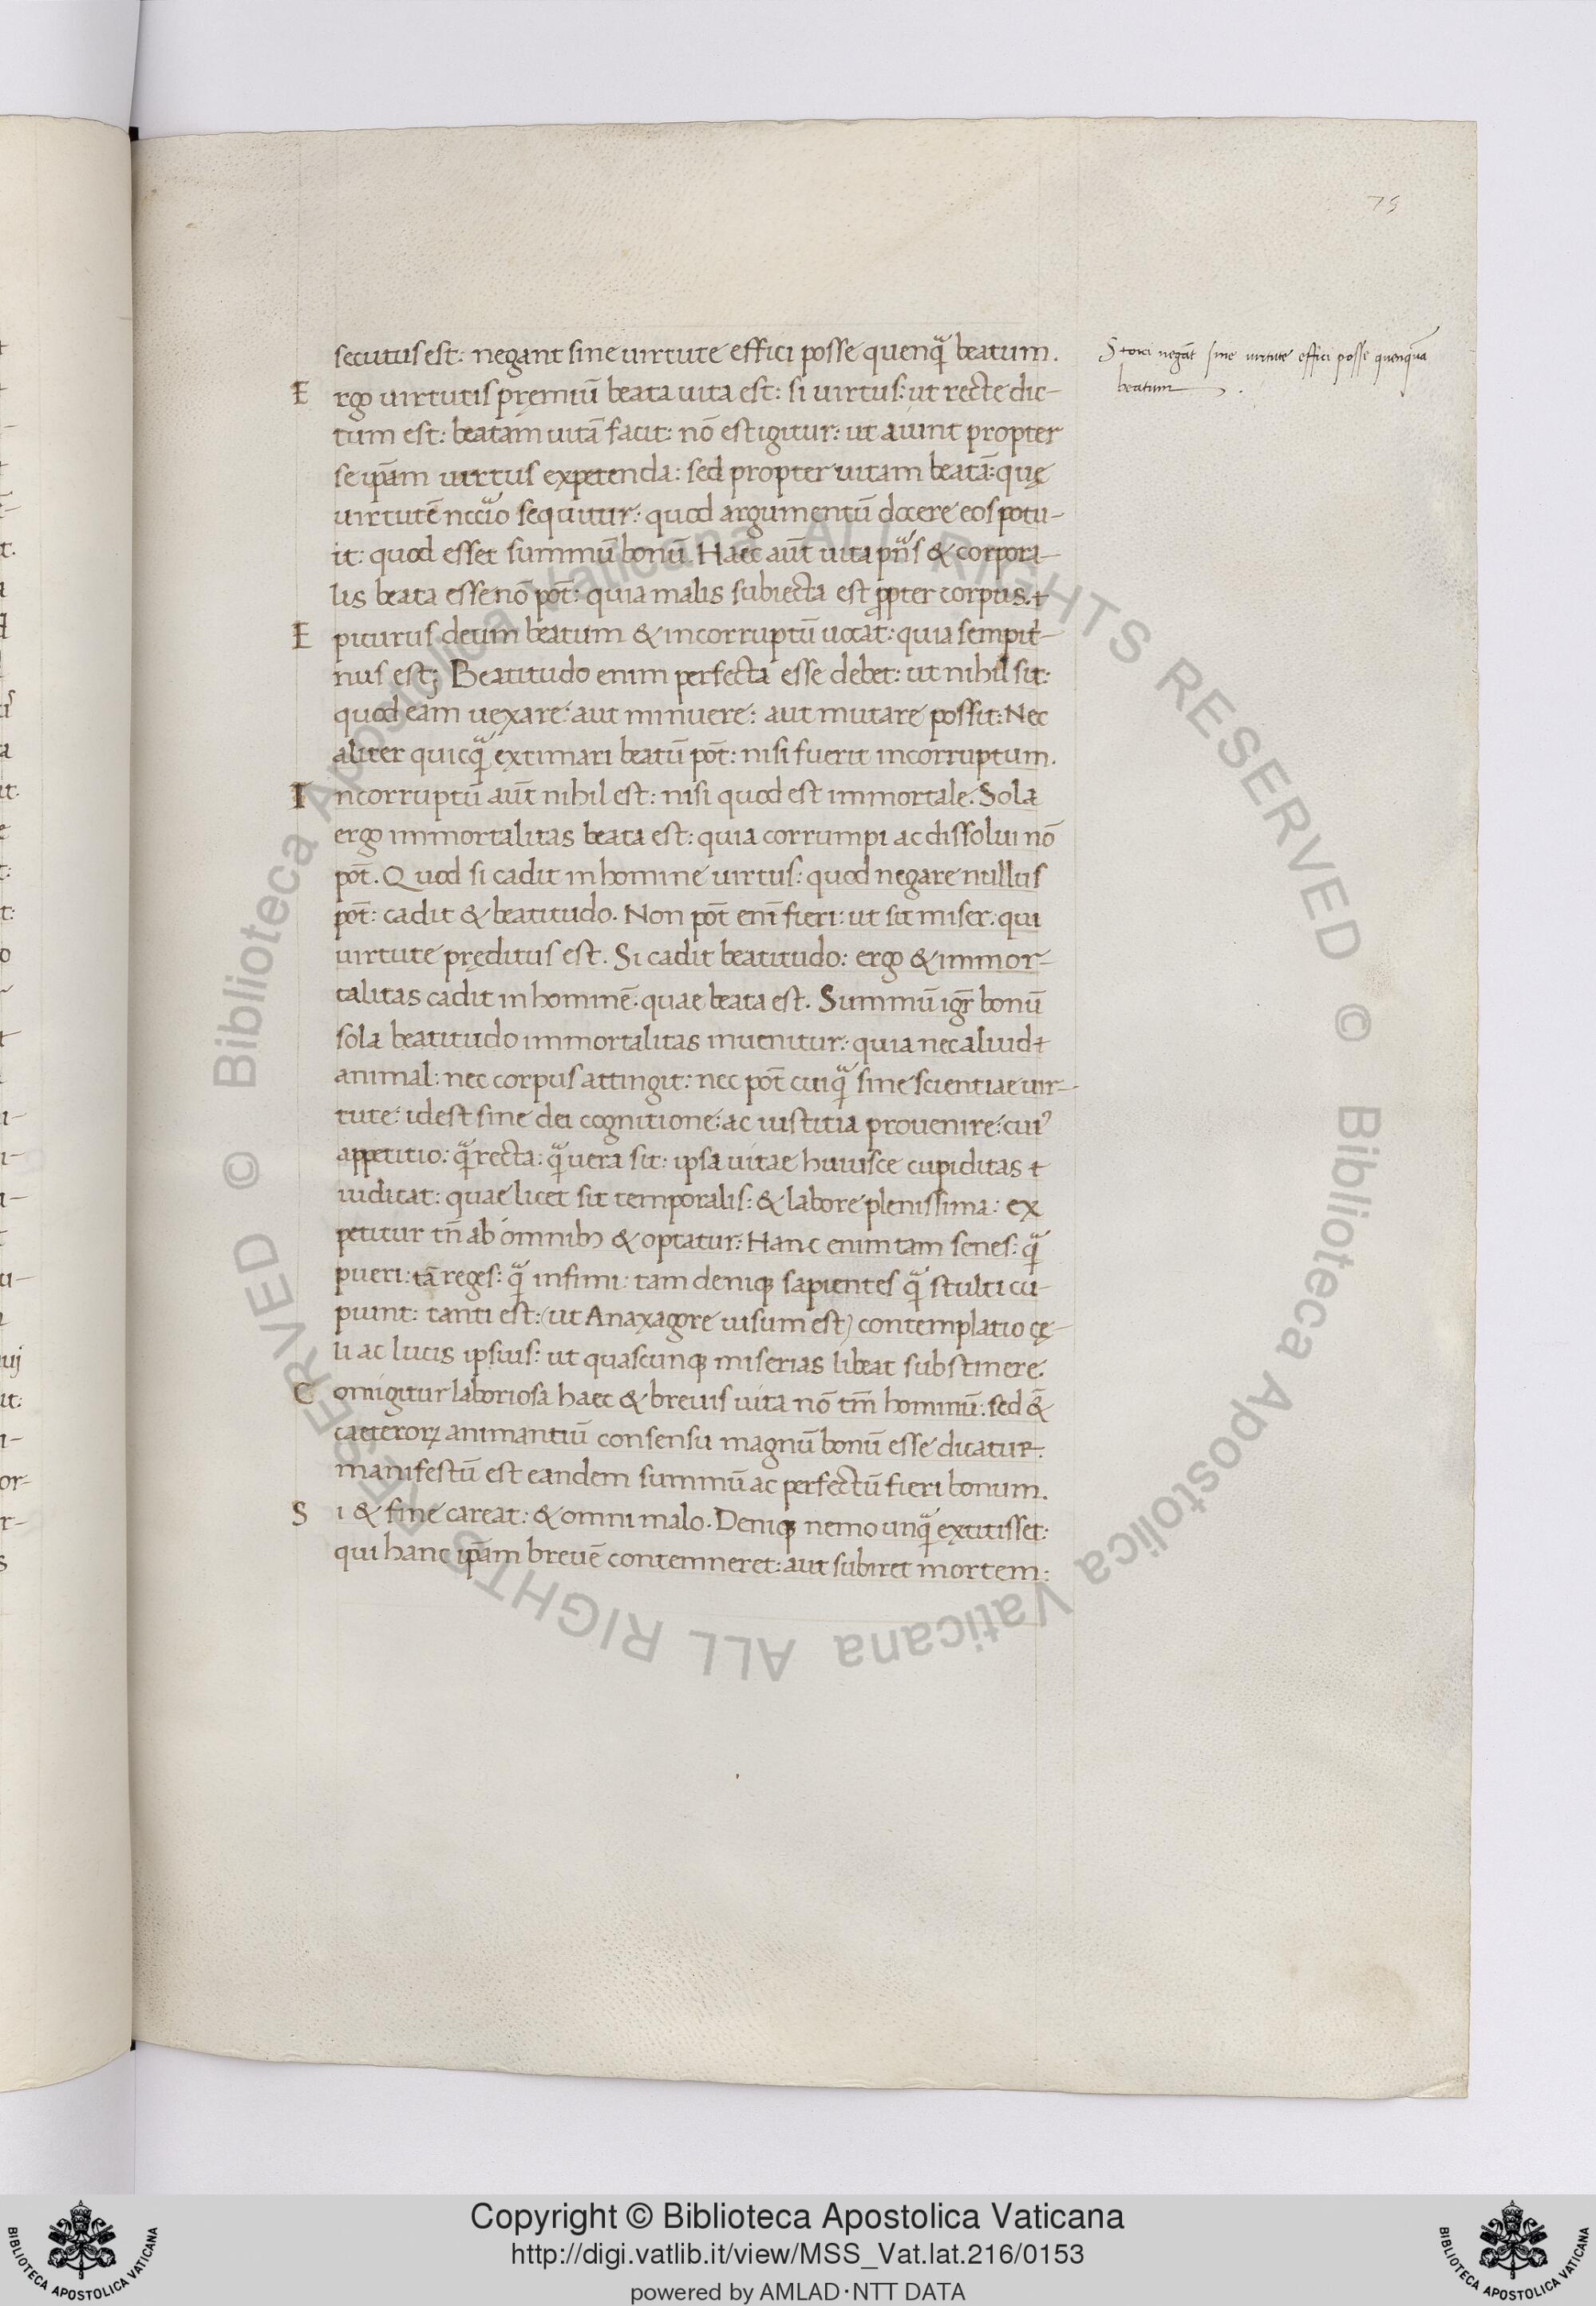 75
secutus est: negant sine uirtute effici posse quenq̃ beatum.
Ergo uirtutis pręmiũ beata uita est: si uirtus: ut recte dic-
tum est: beatam uitã facit: nõ est igitur: ut aiunt propter
se ip̃am uirtus expetenda: sed propter uitam beatã: quę
uirtutẽ nccãio sequitur: quod argumentũ docere eos potu-
it: quod esset summũ bonũ. Haec aũt uita pñs & corpora-
lis beata esse nõ põt: quia malis subiecta est ꝓpter corpus. t
Epicurus deum beatum & incorruptũ uocat: quia sempit̃-
nus est; Beatitudo enim perfecta esse debet: ut nihil sit:
quod eam uexare: aut minuere: aut mutare possit: Nec
aliter quicq̃ extimari beatũ põt: nisi fuerit incorruptum.
Incorruptũ aũt nihil est: nisi quod est immortale. Sola
ergo immortalitas beata est: quia corrumpi ac dissolui nõ
põt. Quod si cadit in homine uirtus: quod negare nullus
põt: cadit & beatitudo. Non põt enĩ fieri: ut sit miser: qui
uirtute pręditus est. Si cadit beatitudo: ergo & immor-
talitas cadit in hominẽ: quae beata est. Summũ igr̃ bonũ
sola beatitudo immortalitas inuenitur: quia nec aliud t
animal: nec corpus attingit: nec põt cuiq̃ sine scientiae uir-
tute: idest sine dei cognitione: ac iustitia prouenire: cuiꝰ
appetitio: q̃ recta: q̃ uera sit: ipsa uitae huiusce cupiditas t
iudicat: quae licet sit temporalis: & labore plenissima: ex
petitur tñ ab omnibꝫ & optatur: Hanc enim tam senes: q̃
pueri: tã reges: q̃ infimi: tam deniqꝫ sapientes q̃ stulti cu-
piunt: tanti est: (ut Anaxagore uisum est) contemplatio cę-
li ac lucis ipsius: ut quascunqꝫ miserias libeat substinere.
Cum igitur laboriosa haec & breuis uita nõ tm̃ hominũ: sed &
caeterorꝝ animantiũ consensu magnũ bonũ esse dicatur:
manifestũ est eandem summũ ac perfectũ fieri bonum.
Si & fine careat: & omni malo. Deniqꝫ nemo unq̃ extitisset:
qui hanc ip̃am breuẽ contemneret: aut subiret mortem:
Stoici negãt sine uirtute effici posse quenquã
beatum.
© Biblioteca Apostolica Vaticana ALL RIGHTS RESERVED © Biblioteca Apostolica Vaticana ALL RIGHTS RESERVED
BIBLIOTECA APOSTOLICA VATICANA
Copyright © Biblioteca Apostolica Vaticana
http://digi.vatlib.it/view/MSS_Vat.lat.216/0153
powered by AMLAD·NTT DATA
BIBLIOTECA APOSTOLICA VATICANA